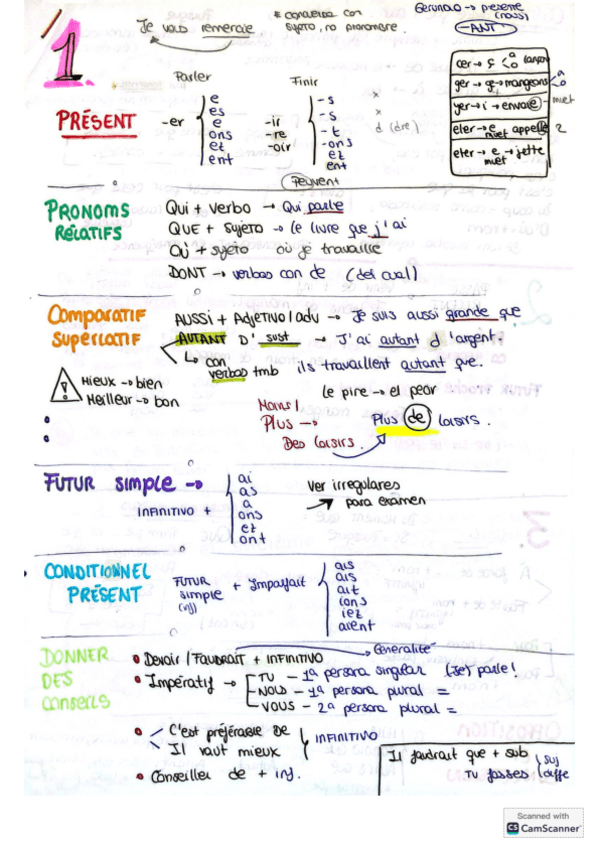 1
Je vous remercie
* concuerda con
sujeto, no pronombre.
Gerundio → presente
(nous)
-ANT
cer → ç < a o lançons
ger → ge → mangeons < a o
yer → i → envoie → muet
eler → e muet appelle 2
eter → e muet → jette
PRÉSENT
Parler
-er
e
es
e
ons
ez
ent
Finir
-ir
-re
-oir
-s
-s
-t
-ons
ez
ent
x
x
d (dre)
Peuvent
PRONOMS
RELATIFS
Qui + verbo → Qui parle
QUE + sujeto → le livre que j'ai
Où + sujeto où je travaille
DONT → verbos con de (del cual)
Comparatif
Superlatif
AUSSI + Adjetivo/adv → Je suis aussi grande que
AUTANT D' sust → J'ai autant d'argent.
↳ con verbos tmb ils travaillent autant que.
Mieux → bien
Meilleur → bon
le pire → el peor
Moins/
Plus → Plus de loisirs.
Des loisirs.
FUTUR simple →
INFINITIVO +
ai
as
a
ons
ez
ont
Ver irregulares
→ para examen
CONDITIONNEL
PRÉSENT
FUTUR
simple
(inf)
+ Imparfait
ais
ais
ait
ions
iez
aient
DONNER
DES
conseils
• Devoir / FAUDRAIT + INFINITIVO → Generalité
• Impératif →
TU - 1ª persona singular (je) parle!
NOUS - 1ª persona plural =
VOUS - 2ª persona plural =
• C'est préférable de
Il vaut mieux
INFINITIVO
• Conseiller de + inf.
Il faudrait que + sub
Tu fasses
Scanned with
CS CamScanner